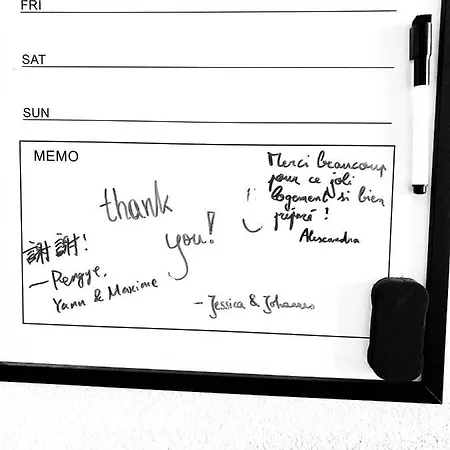 FRI
SAT
SUN
MEMO
Merci beaucoup
pour ce joli
logement si bien
préparé !
Alexandra
thank
you!
謝謝!
— Pengye,
Yann & Maxime
– Jessica & Johannes